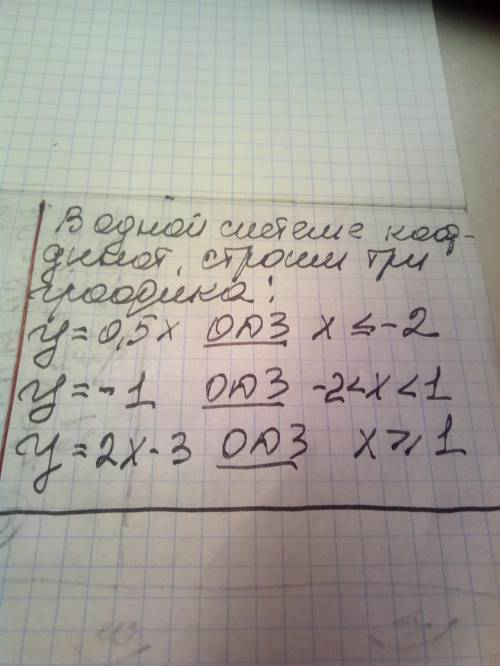 В одной системе коор-
динат, строим три
графика:
у = 0,5х ОДЗ х ≤ -2
у = - 1 ОДЗ -2<х<1
у = 2х - 3 ОДЗ х ≥ 1